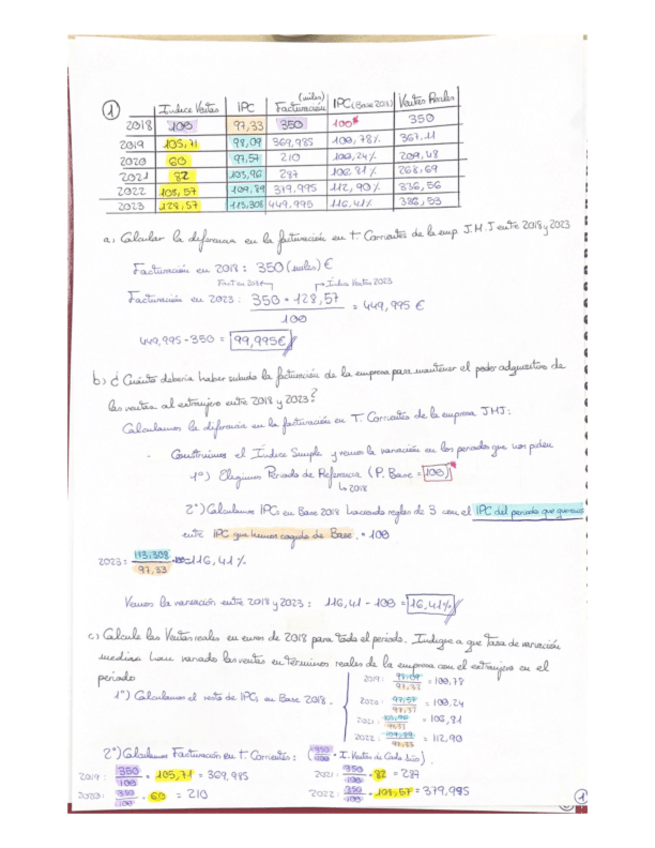 1
Indice Ventas IPC (miles) Facturación IPC (Base 2018) Ventas Reales
2018 100 97,33 350 100 350
2019 105,71 98,09 369,985 100,78% 367,11
2020 60 97,57 210 100,24% 209,48
2021 82 103,96 287 106,81% 268,69
2022 108,57 109,89 379,995 112,90% 336,56
2023 128,57 113,308 449,995 116,41% 386,53
a) Calcular la diferencia en la facturación en t. Corrientes de la emp J.M.J entre 2018 y 2023
Facturación en 2018: 350 (miles) €
Fact en 2018 Índice Ventas 2023
Facturación en 2023: 350 · 128,57 / 100 = 449,995 €
449,995 - 350 = 99,995€
b) ¿Cuánto debería haber subido la facturación de la empresa para mantener el poder adquisitivo de
las ventas al extranjero entre 2018 y 2023?
Calculamos la diferencia en la facturación en T. Corrientes de la empresa JMJ:
- Construimos el Índice Simple y vemos la variación en los periodos que nos piden
1º) Elegimos Periodo de Referencia (P. Base = 100)
2018
2º) Calculamos IPCs en Base 2018 haciendo reglas de 3 con el IPC del periodo que queramos
entre IPC que hemos cogido de Base. · 100
2023: 113,308 / 97,33 · 100 = 116,41%
Vemos la variación entre 2018 y 2023: 116,41 - 100 = 16,41%
c) Calcule las Ventas reales en euros de 2018 para todo el periodo. Indique a que Tasa de variación
mediana han variado las ventas en términos reales de la empresa con el extranjero en el
periodo
1º) Calculamos el resto de IPCs en Base 2018.
2019: 98,09 / 97,33 = 100,78
2020: 97,57 / 97,33 = 100,24
2021: 103,96 / 97,33 = 106,81
2022: 109,89 / 97,33 = 112,90
2º) Calculamos Facturación en t. Corrientes: (350 / 100 · I. Ventas de Cada año).
2019: 350 / 100 · 105,71 = 369,985 2021: 350 / 100 · 82 = 287
2020: 350 / 100 · 60 = 210 2022: 350 / 100 · 108,57 = 379,995
1